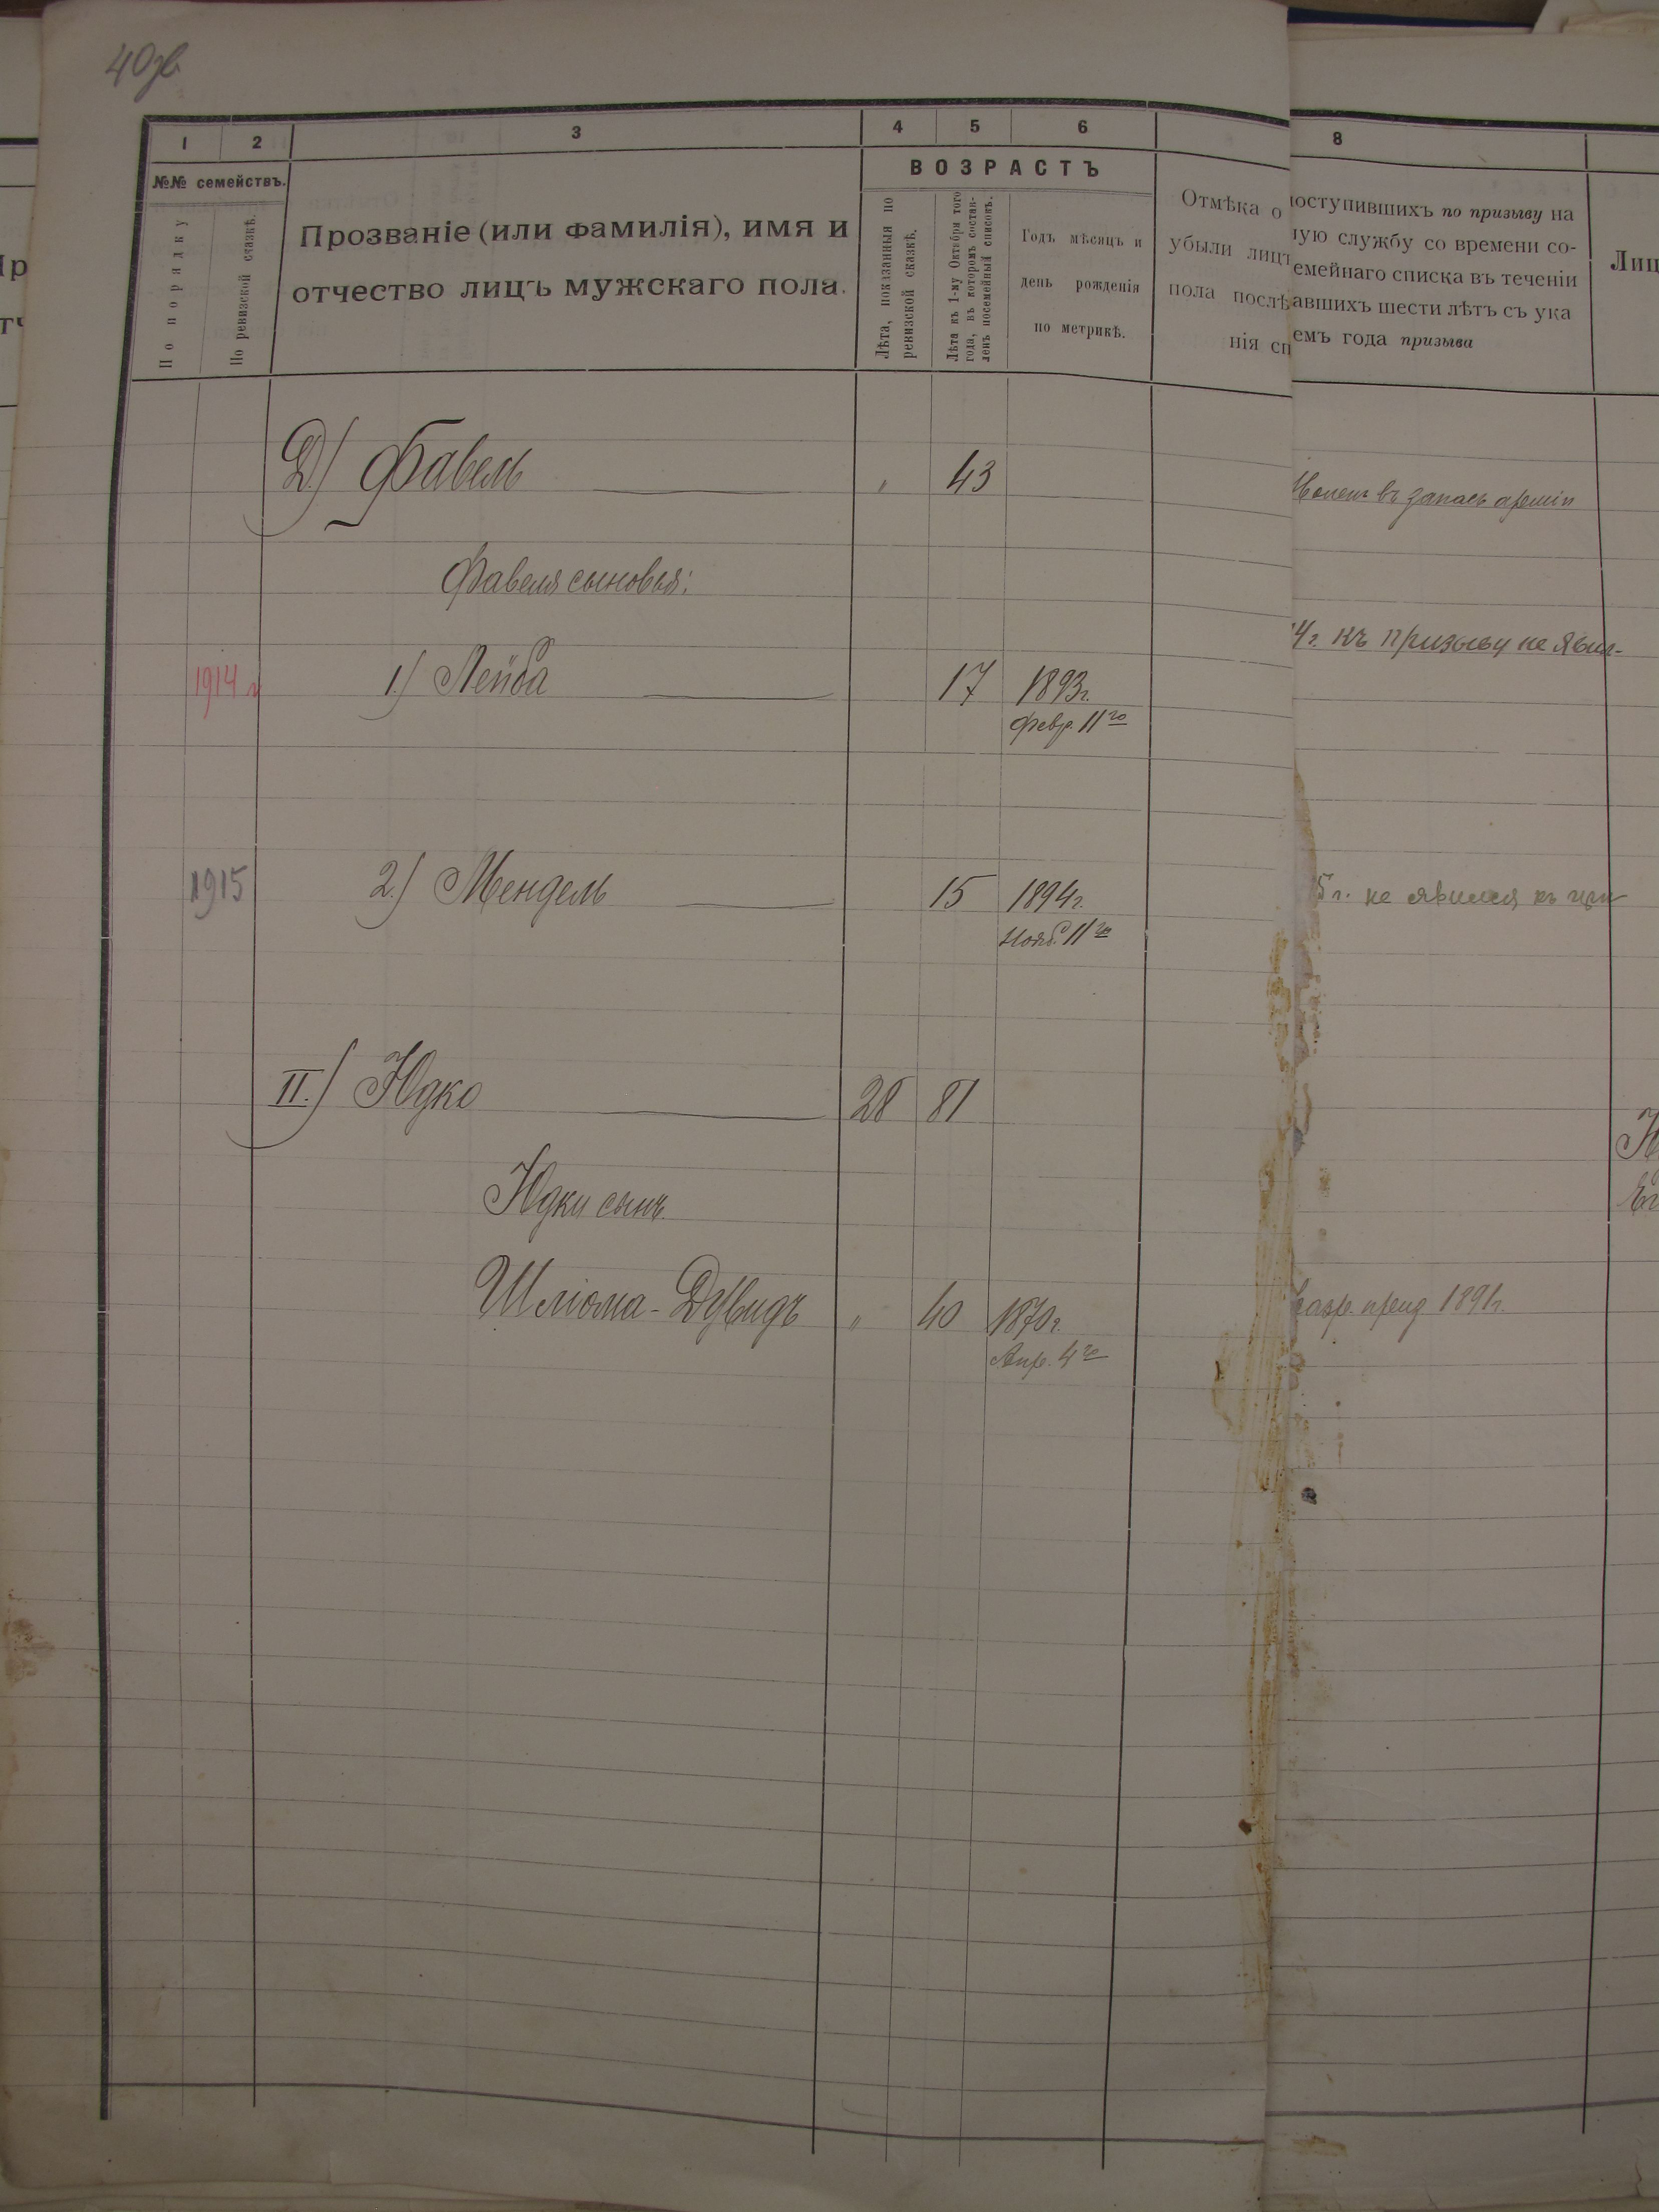 40зв
1 2 3 4 5 6 8
№№ семействъ.
По порядку
По ревизской сказкѣ.
Прозваніе (или фамилія), имя и
отчество лицъ мужскаго пола.
ВОЗРАСТЪ
Лѣта, показанныя по
ревизской сказкѣ.
Лѣта къ 1-му Октября того
года, въ которомъ состав-
ленъ посемейный списокъ.
Годъ мѣсяцъ и
день рожденія
по метрикѣ.
Отмѣка о
убыли лицъ
пола послѣ
нія сп
поступившихъ по призыву на
ную службу со времени со-
емейнаго списка въ теченіи
авшихъ шести лѣтъ съ ука
емъ года призыва
Лиц
Д) Фавель " 43
въ запасъ арміи
Фавеля сыновья:
1914 г 1.) Лейба 17 1893г.
февр. 11го
4г. къ призыву не явил-
1915 2.) Мендель 15 1894г.
Нояб. 11го
5г. не явился къ при
II.) Юдко 28 81
Юдки сынъ
Шліома-Дувидъ " 40 1870г.
Апр. 4го
1891г.